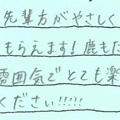 先輩方がやさしく
もらえます!鹿もた
雰囲気でとても楽
ください!!!!!